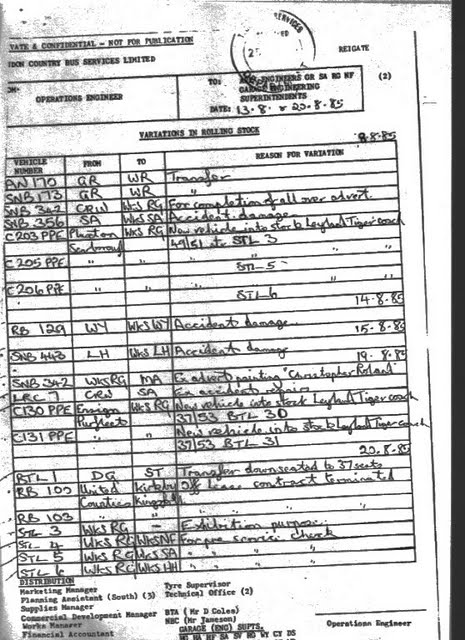 VATE & CONFIDENTIAL - NOT FOR PUBLICATION
DON COUNTRY BUS SERVICES LIMITED
REIGATE
TO: ENGINEERS OR SA RG NF (2)
OPERATIONS ENGINEER
GARAGE ENGINEERING
SUPERINTENDENTS
DATE: 13.8. & 20.8.85
VARIATIONS IN ROLLING STOCK
.8.85
VEHICLE NUMBER FROM TO REASON FOR VARIATION
AN 170 GR WR Transfer
SNB 173 GR WR "
SNB 342 CRW Wks RG For completion of all over advert.
SNB 356 SA Wks SA Accident damage
C203 PPE Plaxton Wks RG New vehicle into stock Leyland Tiger coach
49/51 to STL 3
C205 PPE " " " "
STL 5
C206 PPE " " " "
STL 6
14.8.85
RB 129 WY Wks WY Accident damage
15.8.85
SNB 443 LH Wks LH Accident damage
19.8.85
SNB 342 WKS RG MA Ex advert painting "Christopher Roland"
LRC 7 CRW SA Ex accident repairs
C130 PPE Ensign Wks RG New vehicle into stock Leyland Tiger coach
Purfleet 37/53 BTL 30
C131 PPE " " New vehicle into stock Leyland Tiger coach
37/53 BTL 31
20.8.85
BTL 1 DG ST Transfer downseated to 37 seats
RB 100 United Kirkby Off lease contract terminated
Counties Kingsbury
RB 103 " " "
STL 3 WKS RG - Exhibition purpose
STL 4 WKS RG WKS NF For pre service check
STL 5 WKS RG WKS SA " " "
STL 6 WKS RG WKS HH " " "
DISTRIBUTION
Marketing Manager Tyre Supervisor
Planning Assistant (South) (3) Technical Office (2)
Supplies Manager
Commercial Development Manager BTA (Mr D Coles)
Works Manager NBC (Mr Jameson)
Financial Accountant GARAGE (ENG) SUPTS. Operations Engineer
HA HF SA SV RG WY CY DS